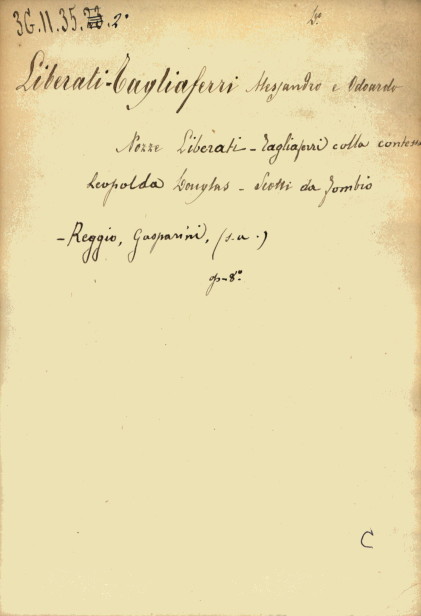 3G.II.35.23.2°
D.°
Liberati-Tagliaferri Alessandro e Odoardo
Nozze Liberati-Tagliaferri colla contessa
Leopolda Douglas-Scotti da Fombio
-Reggio, Gasparini, (s.a.)
8°
C